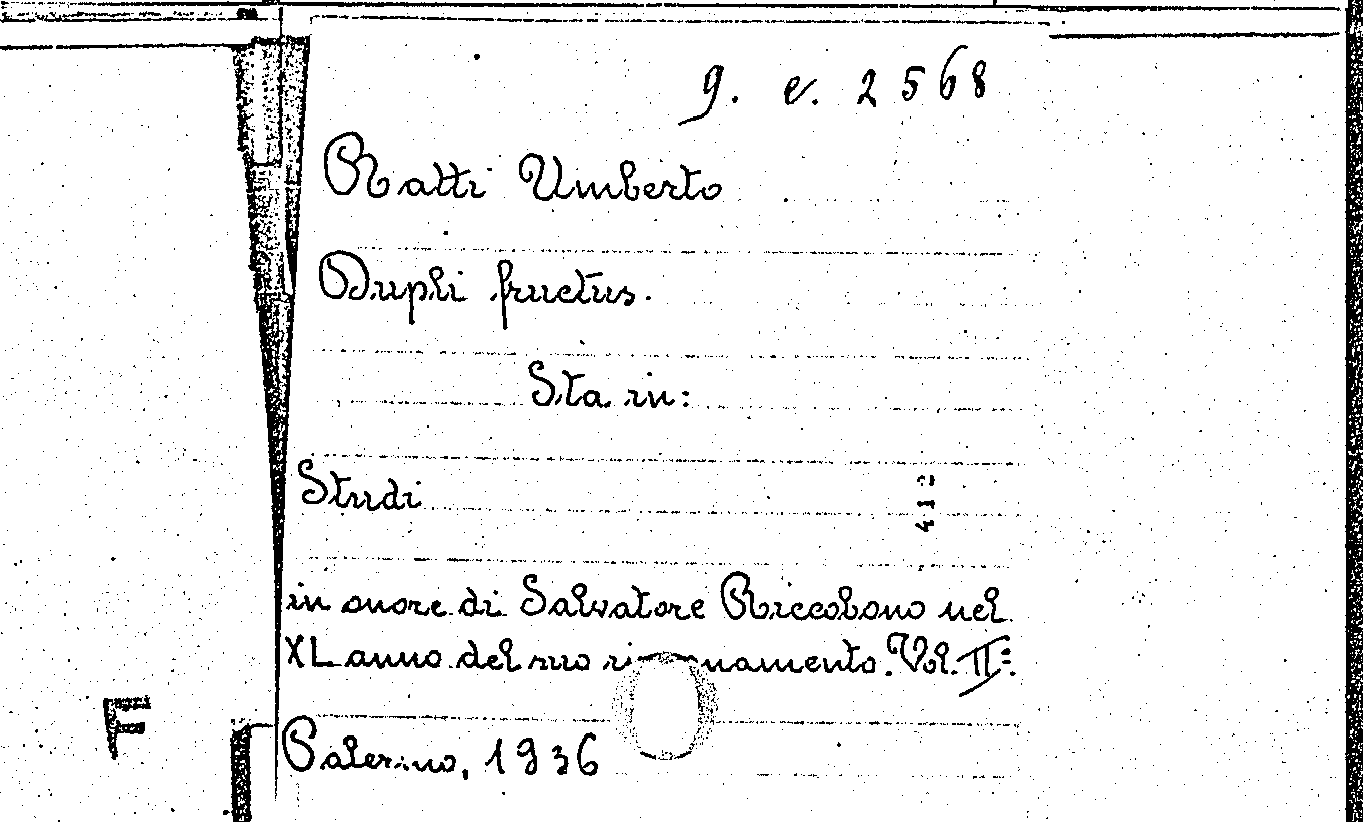 g. e. 2568
Ratti Umberto
Dupli fructus.
Sta in:
Studi
412
in onore di Salvatore Riccobono nel
XL anno del suo Vol. II:
F
Palermo, 1936